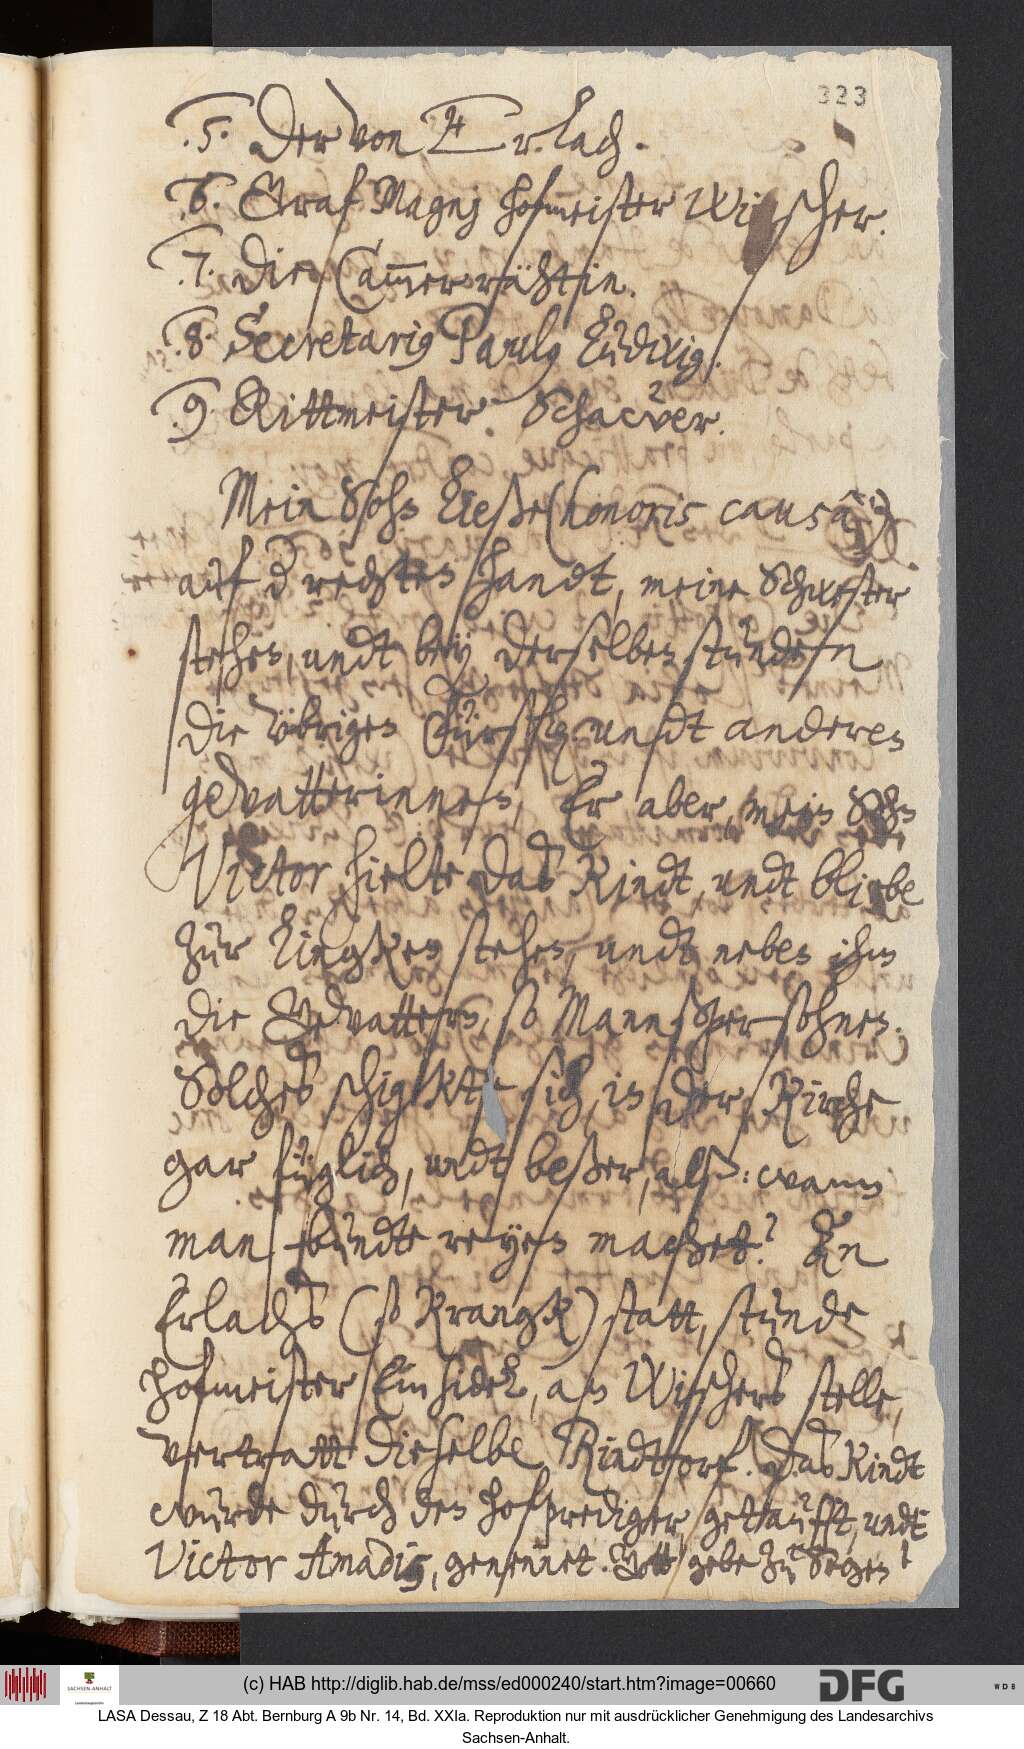 323
.5. Der von Erlach.
.6. Graf Magnj hofmeister Wischer.
.7. Die Cammerrähtin.
.8. Secretarig Paulg Ludwig.
.9. Rittmeister Schacver.
Mein Sohs ließe (honoris causâ)
auf d rechten handt, meine Schwester
stehen, undt bey derselben stunden
die übrigen Fürstl: undt anderen
gevatterinnen, Er aber, mein Sohn
Victor hielte das Kindt, undt bliebe
zur Lingken stehen, undt neben ihm
die Gevattern, so Mannßpersohnen.
Solches schigkte sich, in der Kirche
gar füglich, undt beßer, alß: wann
man bundte reyen machet? In
Erlachs (so Krangk) statt, stunde
Hofmeister Einsidel, an Wischers stelle,
vertratt dieselbe Rindtorf. Das Kindt
wurde durch den hofprediger, gettaufft, undt
Victor Amadig, genennet. Gott gebe zu Segen!
(c) HAB http://diglib.hab.de/mss/ed000240/start.htm?image=00660
SACHSEN-ANHALT
DFG
WDB
LASA Dessau, Z 18 Abt. Bernburg A 9b Nr. 14, Bd. XXIa. Reproduktion nur mit ausdrücklicher Genehmigung des Landesarchivs
Sachsen-Anhalt.